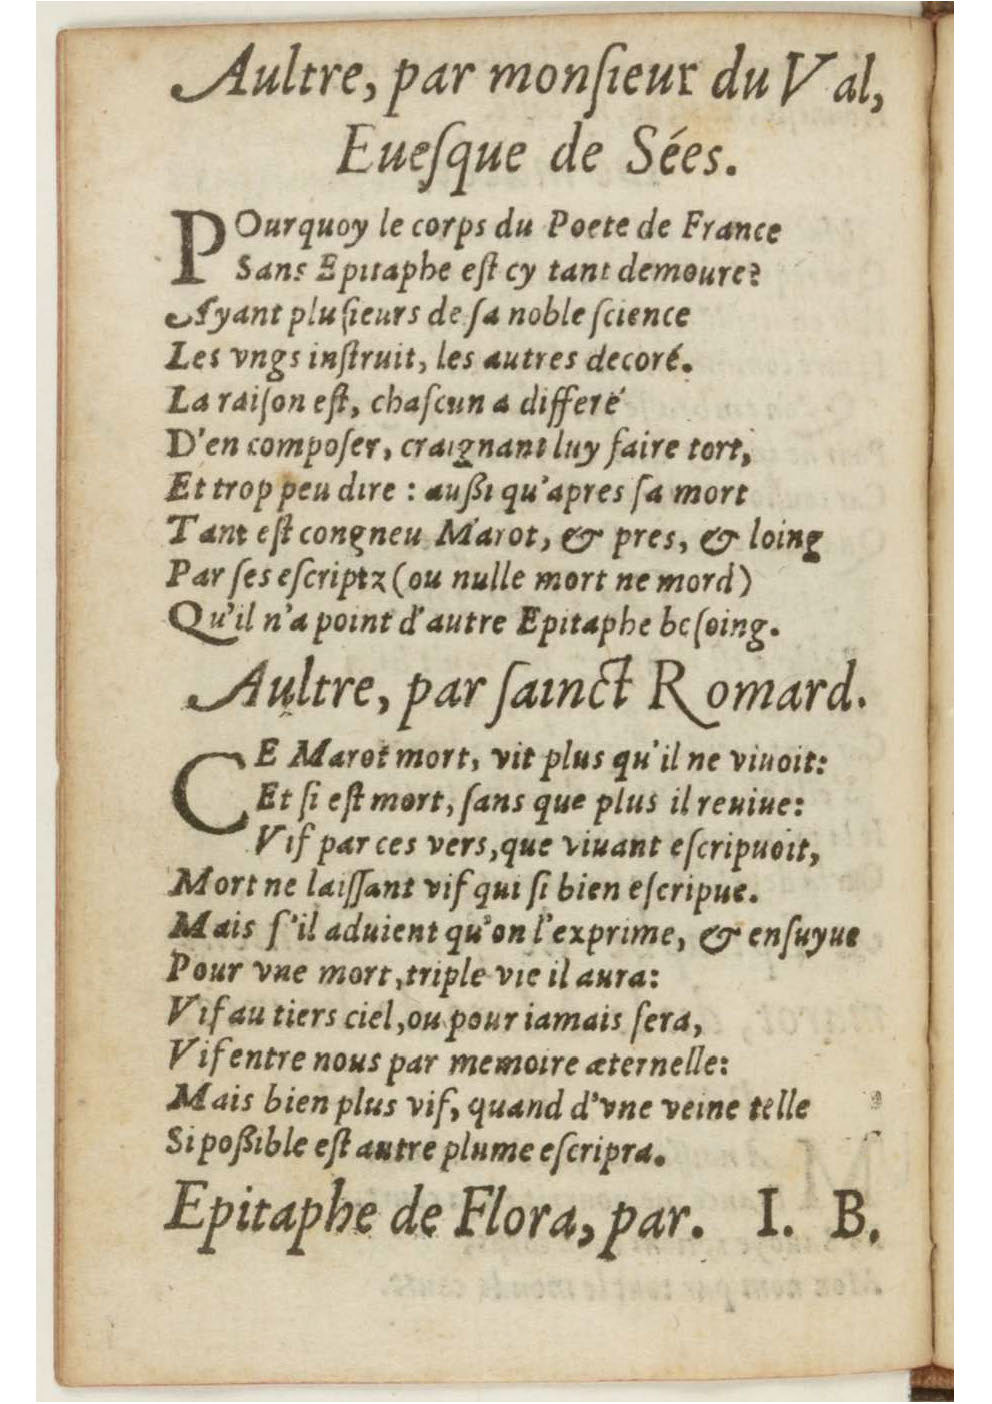 Aultre, par monſieur du Val,
Eueſque de Sées.
POurquoy le corps du Poete de France
Sans Epitaphe eſt cy tant demoure?
Ayant pluſieurs de ſa noble ſcience
Les vngs inſtruit, les autres decoré.
La raiſon eſt, chaſcun a differé
D'en compoſer, craignant luy faire tort,
Et trop peu dire : außi qu'apres ſa mort
Tant eſt congneu Marot, & pres, & loing
Par ſes eſcriptz (ou nulle mort ne mord)
Qu'il n'a point d'autre Epitaphe beſoing.
Aultre, par ſainct Romard.
CE Marot mort, vit plus qu'il ne viuoit:
Et ſi eſt mort, ſans que plus il reuiue:
Vif par ces vers, que viuant eſcripuoit,
Mort ne laiſſant vif qui ſi bien eſcripue.
Mais ſ'il aduient qu'on l'exprime, & enſuyue
Pour vne mort, triple vie il aura:
Vif au tiers ciel, ou pour iamais ſera,
Vif entre nous par memoire æternelle:
Mais bien plus vif, quand d'vne veine telle
Si poßible eſt autre plume eſcripra.
Epitaphe de Flora, par. I. B.